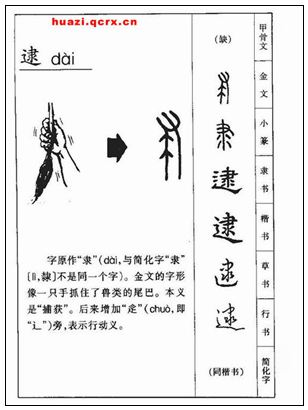 huazi.qcrx.cn
逮 dài
字原作“隶”(dài,与简化字“隶”
[lì,隸]不是同一个字)。金文的字形
像一只手抓住了兽类的尾巴。本义
是“捕获”。后来增加“辵”(chuò,即
“辶”)旁,表示行动义。
(缺)
隶
逮
逮
逮
逮
(同楷书)
甲骨文
金文
小篆
隶书
楷书
草书
行书
简化字